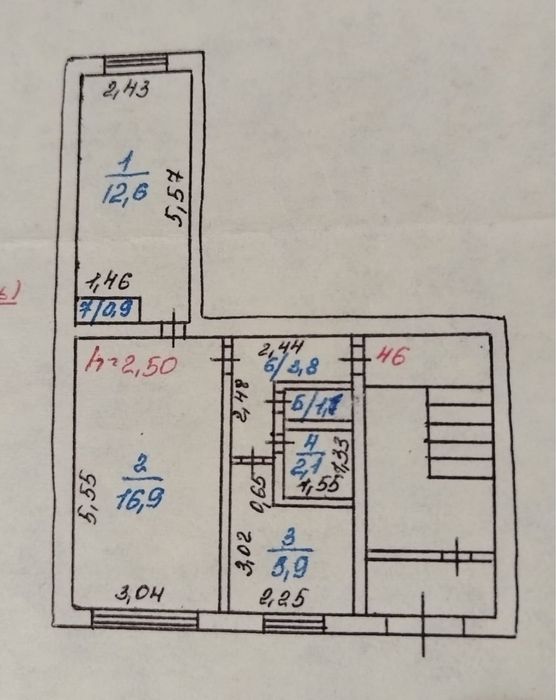 2,43
1
12,6
5,57
1,46
7/0,9
h=2,50
2,44
6/3,8
46
2,48
5/1,1
4
2,1
1,33
1,55
0,65
2
16,9
5,55
3,02
3
8,9
3,04
2,25